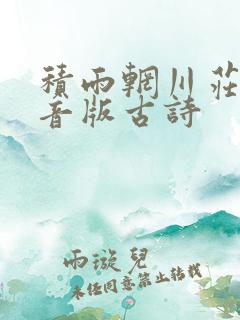 積雨輞川莊
音版古詩
雨漩兒
未經同意禁止轉載